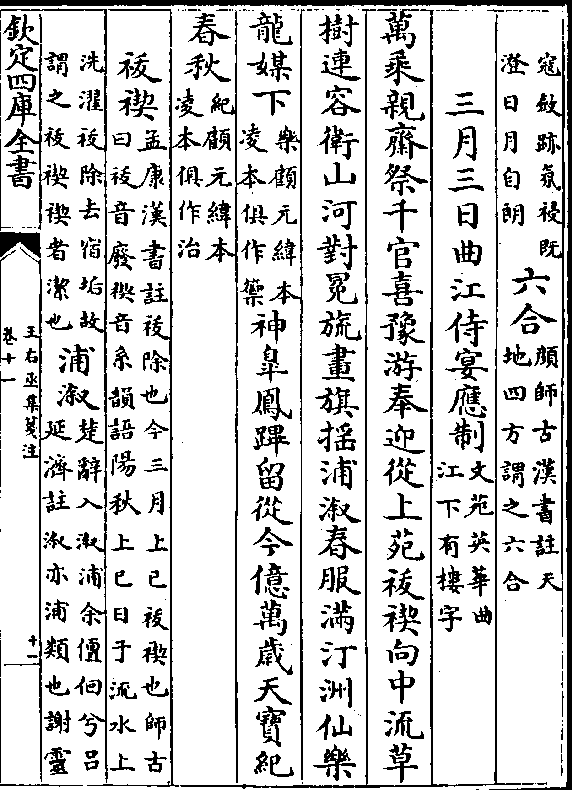 寇斂跡氛祲既
澄日月自朗
六合
顔師古漢書註天
地四方謂之六合
三月三日曲江侍宴應制
文苑英華曲
江下有樓字
萬乘親齋祭千官喜豫游奉迎從上苑祓禊向中流草
樹連容衛山河對冕旒畫旗揺浦溆春服滿汀洲仙樂
龍媒下
樂顧元緯本
凌本俱作籞
神臯鳳蹕留從今億萬歳天寶紀
春秋
紀顧元緯本
凌本俱作治
祓禊
孟康漢書註祓除也今三月上巳祓禊也師古
曰祓音廢禊音系韻語陽秋上巳日于流水上
洗濯祓除去宿垢故
謂之祓禊禊者潔也
浦溆
楚辭入溆浦余儃佪兮吕
延濟註溆亦浦類也謝靈
欽定四庫全書
王右丞集箋注
卷十一
十一